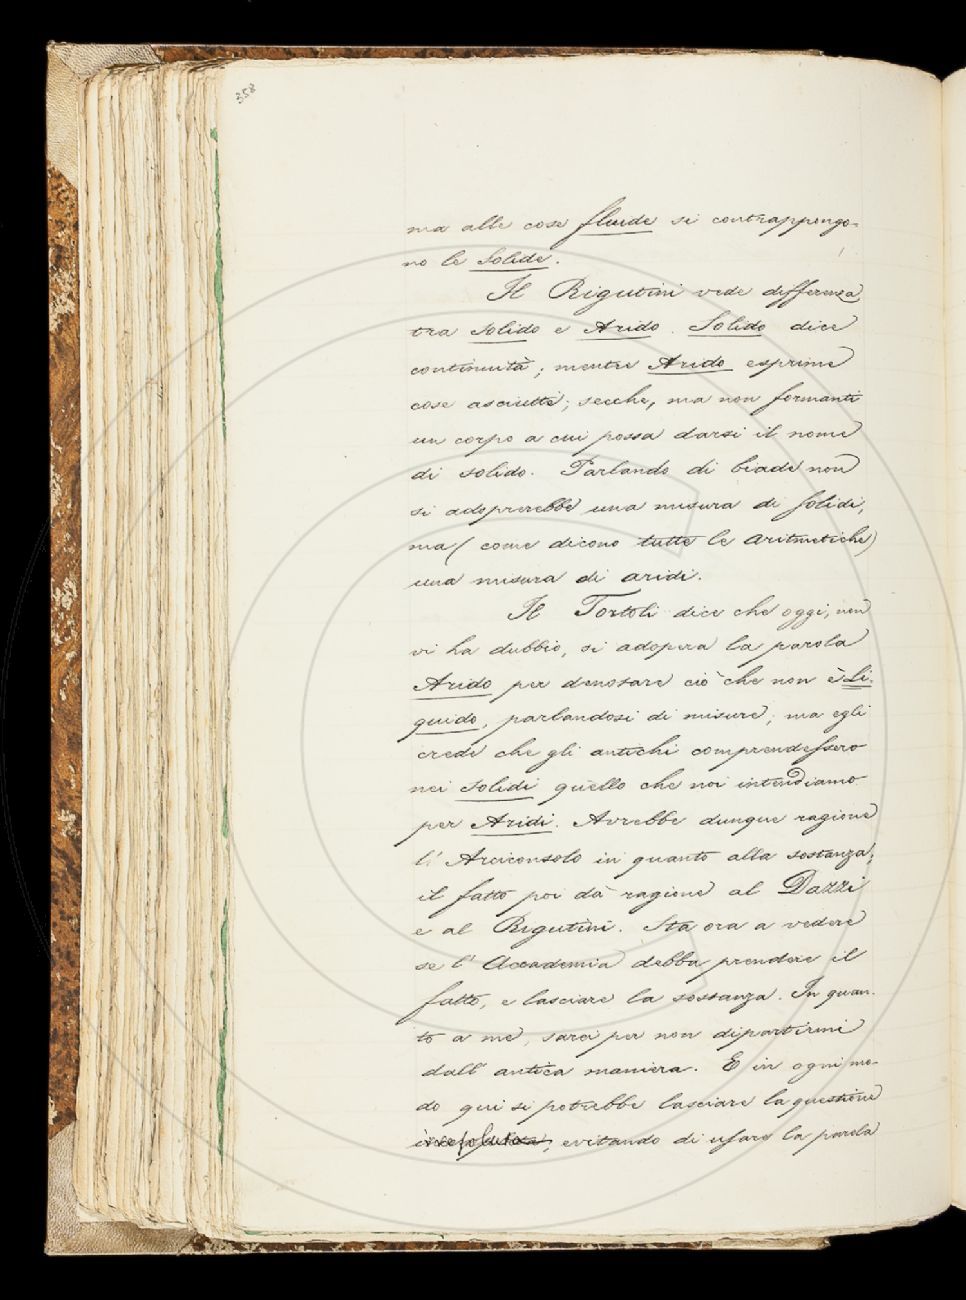 358
ma alle cose fluide si contrappongo-
no le Solide.
Il Rigutini vede differenza
tra Solido e Arido. Solido dice
continuità; mentre Arido esprime
cose asciutte; secche, ma non formanti
un corpo a cui possa darsi il nome
di solido. Parlando di biade non
si adoprerebbe una misura di solidi,
ma (come dicono tutte le aritmetiche)
una misura di aridi.
Il Tortoli dice che oggi, non
vi ha dubbio, si adopera la parola
Arido per denotare ciò che non è Li-
quido, parlandosi di misure; ma egli
crede che gli antichi comprendessero
nei Solidi quello che noi intendiamo
per Aridi. Avrebbe dunque ragione
l'Arciconsolo in quanto alla sostanza;
il fatto poi dà ragione al Dazzi
e al Rigutini. Sta ora a vedere
se l'Accademia debba prendere il
fatto, e lasciare la sostanza. In quan-
to a me, sarei per non dipartirmi
dall'antica maniera. E in ogni mo-
do qui si potrebbe lasciare la questione
irresoluta, evitando di usare la parola